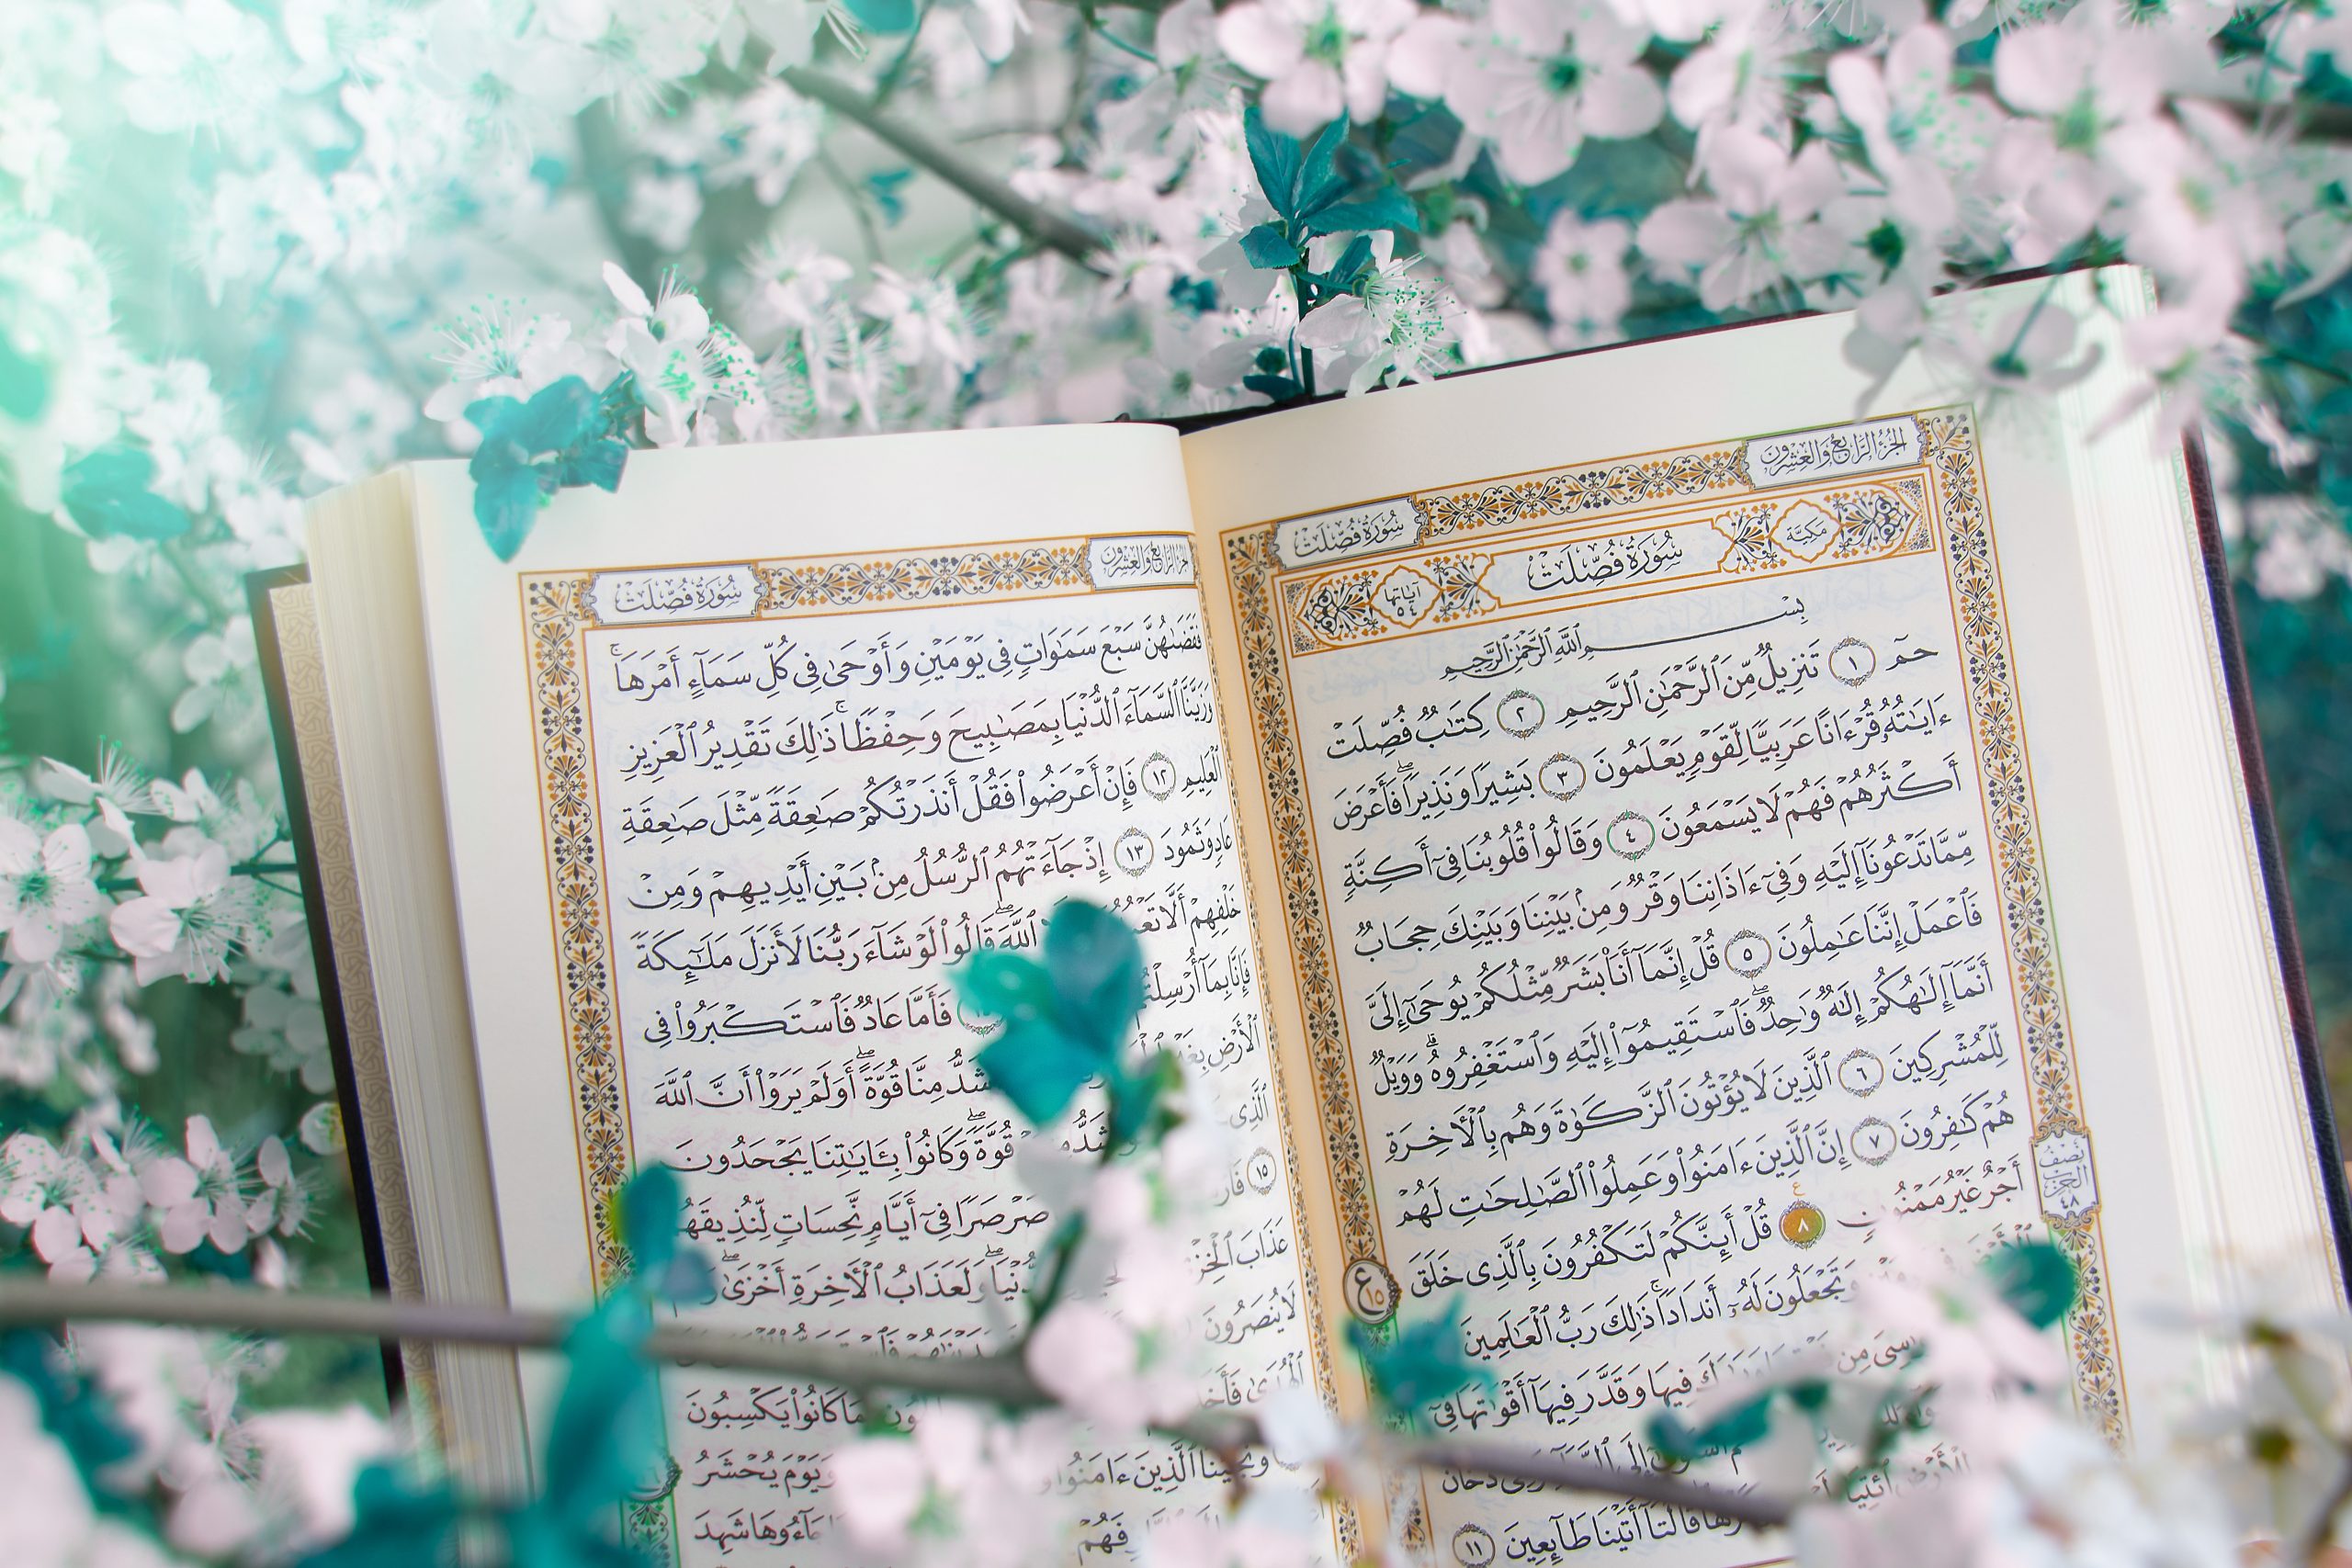 الجزء الرابع والعشرون
سورة فصلت
مكية
سورة فصلت
آياتها ٥٤
بِسْمِ ٱللَّهِ ٱلرَّحْمَٰنِ ٱلرَّحِيمِ
حمٓ ١ تَنزِيلٌ مِّنَ ٱلرَّحْمَٰنِ ٱلرَّحِيمِ ٢ كِتَٰبٌ فُصِّلَتْ
ءَايَٰتُهُۥ قُرْءَانًا عَرَبِيًّا لِّقَوْمٍ يَعْلَمُونَ ٣ بَشِيرًا وَنَذِيرًا فَأَعْرَضَ
أَكْثَرُهُمْ فَهُمْ لَا يَسْمَعُونَ ٤ وَقَالُوا۟ قُلُوبُنَا فِىٓ أَكِنَّةٍ
مِّمَّا تَدْعُونَآ إِلَيْهِ وَفِىٓ ءَاذَانِنَا وَقْرٌ وَمِنۢ بَيْنِنَا وَبَيْنِكَ حِجَابٌ
فَٱعْمَلْ إِنَّنَا عَٰمِلُونَ ٥ قُلْ إِنَّمَآ أَنَا۠ بَشَرٌ مِّثْلُكُمْ يُوحَىٰٓ إِلَىَّ
أَنَّمَآ إِلَٰهُكُمْ إِلَٰهٌ وَٰحِدٌ فَٱسْتَقِيمُوٓا۟ إِلَيْهِ وَٱسْتَغْفِرُوهُ ۗ وَوَيْلٌ
لِّلْمُشْرِكِينَ ٦ ٱلَّذِينَ لَا يُؤْتُونَ ٱلزَّكَوٰةَ وَهُم بِٱلْءَاخِرَةِ
هُمْ كَٰفِرُونَ ٧ إِنَّ ٱلَّذِينَ ءَامَنُوا۟ وَعَمِلُوا۟ ٱلصَّٰلِحَٰتِ لَهُمْ
أَجْرٌ غَيْرُ مَمْنُونٍ ٨ قُلْ أَئِنَّكُمْ لَتَكْفُرُونَ بِٱلَّذِى خَلَقَ
ٱلْأَرْضَ وَتَجْعَلُونَ لَهُۥٓ أَندَادًا ۚ ذَٰلِكَ رَبُّ ٱلْعَٰلَمِينَ
رَوَٰسِىَ مِن فِيهَا وَقَدَّرَ فِيهَآ أَقْوَٰتَهَا فِىٓ
إِلَى دُخَانٌ
ٱئْتِيَا قَالَتَآ أَتَيْنَا طَآئِعِينَ ١١
نصف الحزب ٤٨
ع ١٥
الجزء الرابع والعشرون
سورة فصلت
فَقَضَىٰهُنَّ سَبْعَ سَمَٰوَاتٍ فِى يَوْمَيْنِ وَأَوْحَىٰ فِى كُلِّ سَمَآءٍ أَمْرَهَا ۚ
وَزَيَّنَّا ٱلسَّمَآءَ ٱلدُّنْيَا بِمَصَٰبِيحَ وَحِفْظًا ۚ ذَٰلِكَ تَقْدِيرُ ٱلْعَزِيزِ
ٱلْعَلِيمِ ١٢ فَإِنْ أَعْرَضُوا۟ فَقُلْ أَنذَرْتُكُمْ صَٰعِقَةً مِّثْلَ صَٰعِقَةِ
عَادٍ وَثَمُودَ ١٣ إِذْ جَآءَتْهُمُ ٱلرُّسُلُ مِنۢ بَيْنِ أَيْدِيهِمْ وَمِنْ
خَلْفِهِمْ أَلَّا ٱللَّهَ ۖ قَالُوا۟ لَوْ شَآءَ رَبُّنَا لَأَنزَلَ مَلَٰٓئِكَةً
فَإِنَّا بِمَآ فَأَمَّا عَادٌ فَٱسْتَكْبَرُوا۟ فِى
ٱلْأَرْضِ مِنَّا قُوَّةً ۖ أَوَلَمْ يَرَوْا۟ أَنَّ ٱللَّهَ
ٱلَّذِى قُوَّةً ۖ وَكَانُوا۟ بِـَٔايَٰتِنَا يَجْحَدُونَ
١٥ صَرْصَرًا فِىٓ أَيَّامٍ نَّحِسَاتٍ لِّنُذِيقَهُمْ
عَذَابَ ٱلْخِزْىِ وَلَعَذَابُ ٱلْءَاخِرَةِ أَخْزَىٰ ۖ
لَا يُنصَرُونَ
ٱلْهُدَىٰ مَا كَانُوا۟ يَكْسِبُونَ
وَنَجَّيْنَا ٱلَّذِينَ ءَامَنُوا۟ وَيَوْمَ يُحْشَرُ
فَهُمْ جَآءُوهَا شَهِدَ